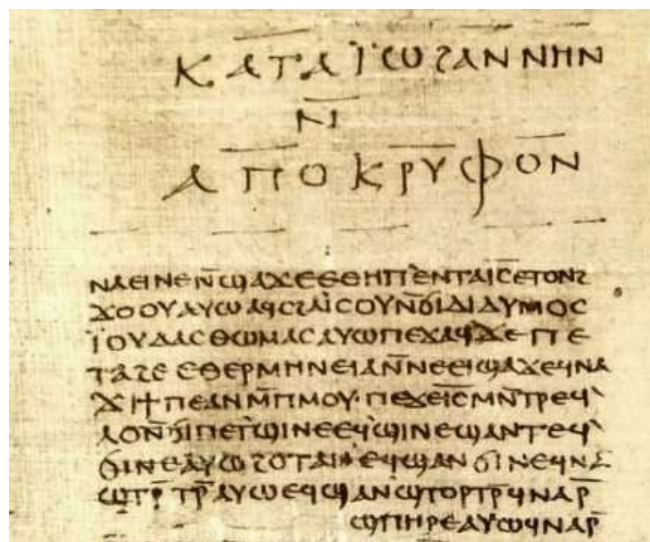 ⲕⲁⲧⲁⲓ̈ⲱϩⲁⲛⲛⲏⲛ
ⲛ̄
ⲁⲡⲟⲕⲣⲩⲫⲟⲛ
ⲛⲁⲉⲓⲛⲉⲛ̄ϣⲁϫⲉⲉⲑⲏⲡⲉⲛⲧⲁⲓ̅ⲥ̅ⲉⲧⲟⲛϩ
ϫⲟⲟⲩⲁⲩⲱⲁϥⲥϩⲁⲓ̈ⲥⲟⲩⲛ̄ϭⲓⲇⲓⲇⲩⲙⲟⲥ
ⲓ̈ⲟⲩⲇⲁⲥⲑⲱⲙⲁⲥⲁⲩⲱⲡⲉϫⲁϥϫⲉⲡⲉ
ⲧⲁϩⲉⲉⲑⲉⲣⲙⲏⲛⲉⲓⲁⲛ̄ⲛⲉⲉⲓϣⲁϫⲉϥⲛⲁ
ϫⲓϯⲡⲉⲁⲛⲙ̄ⲡⲙⲟⲩ·ⲡⲉϫⲉⲓ̅ⲥ̅ⲙⲛ̄ⲧⲣⲉϥ
ⲗⲟⲛ̄ϭⲓⲡⲉⲧϣⲓⲛⲉⲉϥϣⲓⲛⲉϣⲁⲛⲧⲉϥ
ϭⲓⲛⲉⲁⲩⲱϩⲟⲧⲁⲛⲉϥϣⲁⲛϭⲓⲛⲉϥⲛⲁ
ϣⲧⲣ̄ⲧⲣ̄ⲁⲩⲱⲉϥϣⲁⲛϣⲧⲟⲣⲧⲣ̄ϥⲛⲁⲣ̄
ϣⲡⲏⲣⲉⲁⲩⲱϥⲛⲁⲣ̄